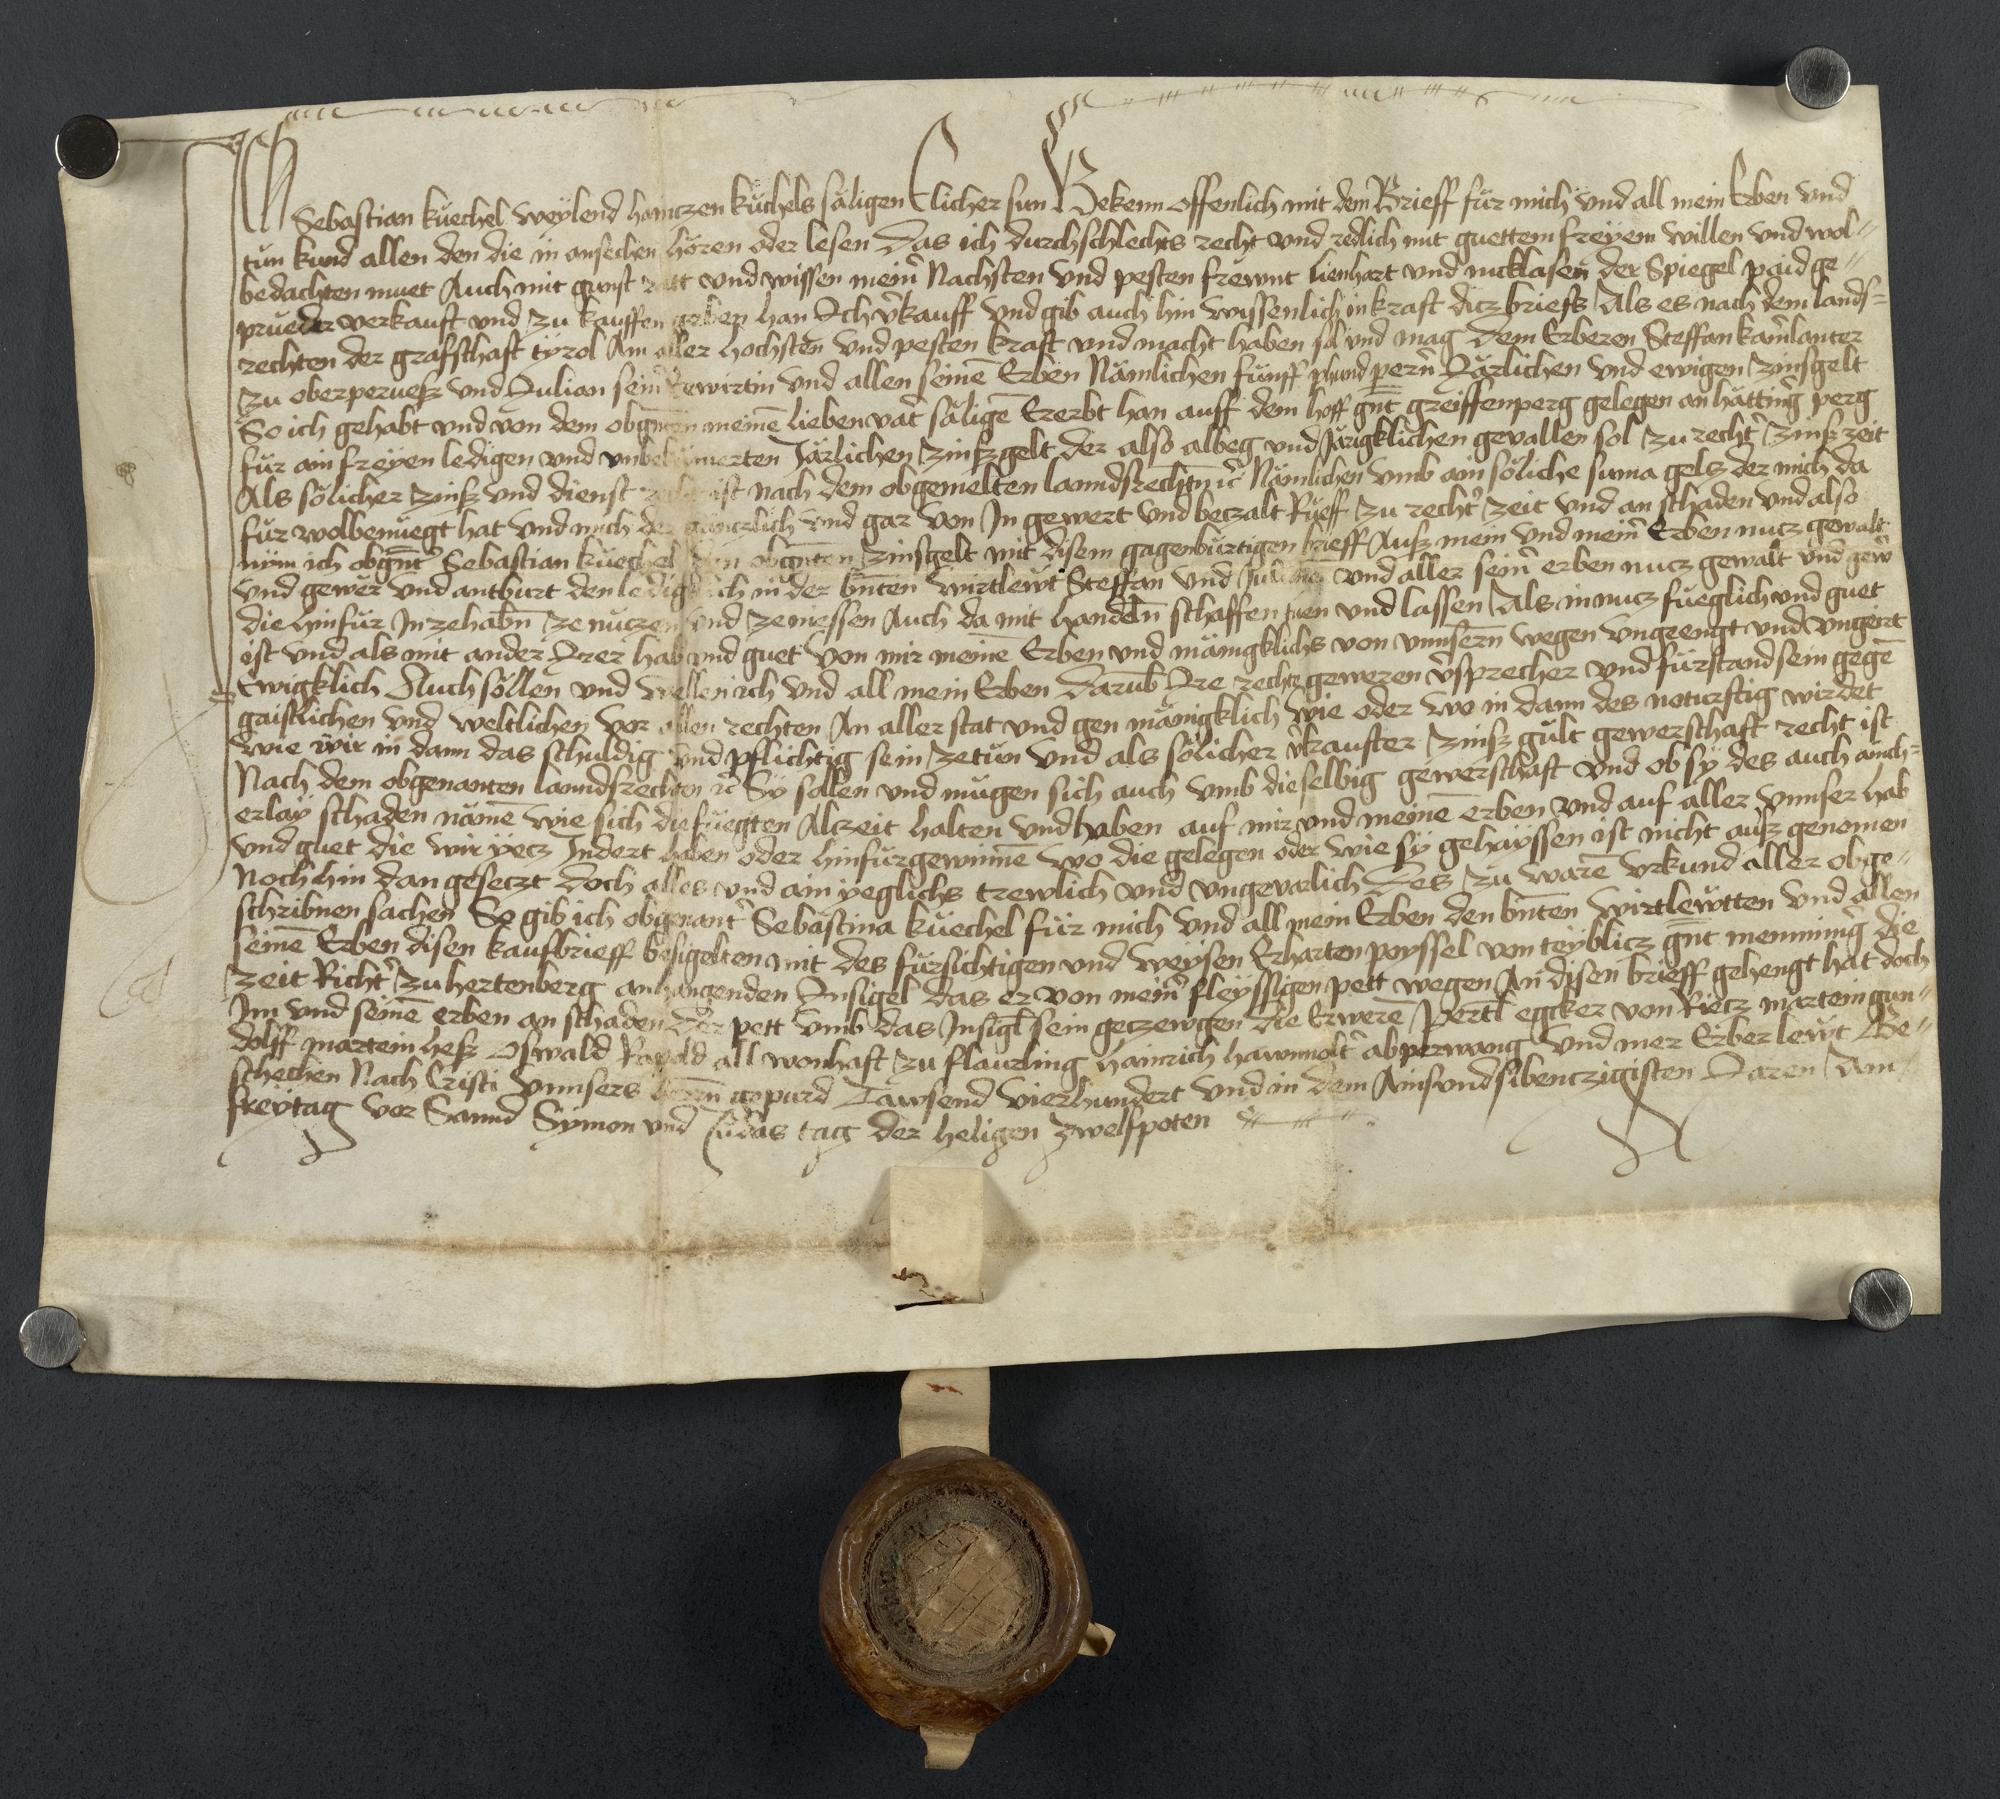 Ich Sebastian kuechel weylend hainczen kuchels säligen Elicher sun Bekenn offenlich mit dem Brieff für mich und all mein Erben und
tun kund allen den die in ansechen hören oder lesen Das ich durchschlechts recht und redlich mit guettem freyem willen und wol-
bedachten muet Auch mit gunst ratt und wissen meinr̄ Nachsten und pesten frewnt lienhart und nicklasen der Spiegel paid ge-
prueder verkauft und zu kauffen geben han Ich v̄kauff und gib auch hin wissenlich in kraft dicz briefs Als es nach dem lands-
rechten der grafschaft tyrol Am aller hochsten und pesten kraft und macht haben sol und mag Dem Erberen Steffan
zu oberperuess und Julian seinr̄ Eewirtin und allen seinē Erben Nämlichen fünff phund pernr̄ Järlichen und ewigen zinsgelt
So ich gehabt und von dem obgn̄ten meinē lieben vatr̄ säligē Ererbt han auff dem hoff gn̄t greiffenperg gelegen an hättingr̄ perg
für ain freyen ledigen und unbekümerten Järlichen zinsgelt der also albeg und Järigklichen gevallen sol zu rechtr̄ zinsz zeit
Als sölicher zinsz und dienst recht ist nach dem obgemelten lanndsrechtn̄ rc̄ Nämlichen umb ain söliche suma gelcz der mich da
für wolbenuegt hat und mich der gänczlich und gar von In gewert und beczalt Rueff zu rechtr̄ zeit und an schaden und also
nym ich obgn̄tr̄ Sebastian kuechel den obgn̄ten zinsgelt mit disem gagenburtigen brieff Ausz mein und meinr̄ Erben nucz gewalt
und gewer und antburt den ledigklich in der bn̄ten wirtlewt Steffan und Julianen und aller seinr̄ erben nucz gewalt und gewr̄
die hinfür Inzehabn̄ ze nuczen und ze niessen Auch da mit handeln̄ schaffen tuen und lassen Als in nucz fueglich und guet
ist und als mit ander Irer hab und guet von mir meinē Erben und mänigklichs von unnsern̄ wegen ungeengt und ungeirt
Ewigklich Auch söllen und wellen ich und all mein Erben Darub̄ Ire rechte geweren v̄sprecher und fürstand sein gegē
gaistlichen und weltlichen vor allen rechten An aller stat und gen mänigklich wie oder wo in dann des noturftig wirdet
wie wir in dann das schuldig und pflichtig sein zetun und als sölicher v̄kaufter zinsz gult gewerschaft recht ist
Nach dem obgenanten lanndsrechten rc̄ Sy sollen und mugen sich auch umb dieselbig gewerschaft und ob sy des auch ainch-
erlay schaden nämē wie sich die fuegten Alczeit halten und haben auf mir und meinē erben und auf aller unnser hab
und guet die wir yecz Indert haben oder hinfür gewinnē wo die gelegen oder wie sy gehayssen ist nicht ausz genomen
Noch hin dan gesetzt doch alles und ain yeglichs trewlich und ungevarlich Des zu warē urkund aller obge-
schribnen sachen So gib ich obgenantr̄ Sebastina kuechel für mich und all mein Erben den bn̄ten wirtlewtten und allen
seinē Erben disen kaufbrieff besigelten mit des fürsichtigen und weysen Erharten poyssel von teyblicz gn̄t die
zeit Richtr̄ zu hertenberg anhangenden Insigel das er von meinr̄ fleyssigen pett wegen An disen brieff gehengt hat doch
Im und seinē erben an schaden Der pett umb das Insigl̄ sein geczewgen die Erwerē Pertl̄ egcker von Rietz martein gun-
dolff martein hess Oswald Rapold all wonhaft zu flaurling hainrich ab perwang und mer Erber lewt Be-
schechen Nach Cristi unnsers herrn̄ gepurd Tawsend vierhundert und in dem Ainsundsibenczigisten Jaren Am
freytag vor Sannd Symon und Judas tag der heligen zwelfpoten